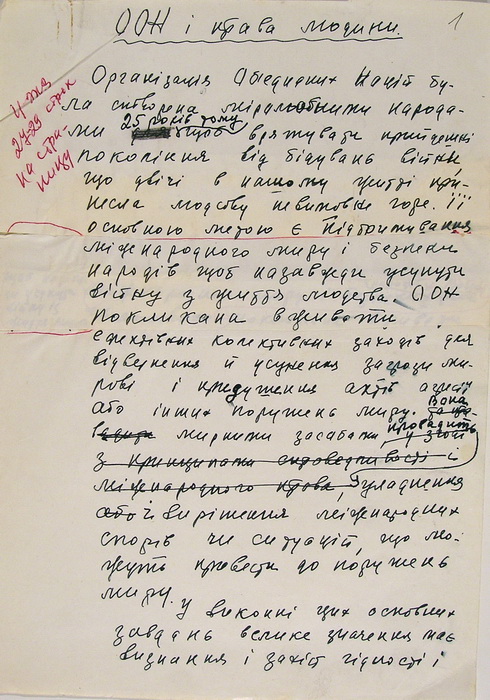 ООН і права людини.
1
Організація Обєднаних Націй бу-
ла створена миролюбними народа-
ми 25 років тому щоб врятувати прийдешні
покоління від бідувань війни
що двічі в нашому житті при-
несла людству невимовне горе. Її
основною метою є підтримування
міжнародного миру і безпеки
народів щоб назавжди усунути
війну з життя людства. ООН
покликана вживати
ефективних колективних заходів для
відвернення й усунення загрози ми-
рові і придушення актів агресії
або інших порушень миру. Вона
мирними засобами провадить
у згоді
з принципами справедливості і
міжнародного права, уладнення
або й вирішення міжнародних
спорів чи ситуацій, що мо-
жуть привести до порушень
миру.
У виконні цих основних
завдань велике значення має
визнання і захист гідності і
27-29 строк
на сто-
рінку